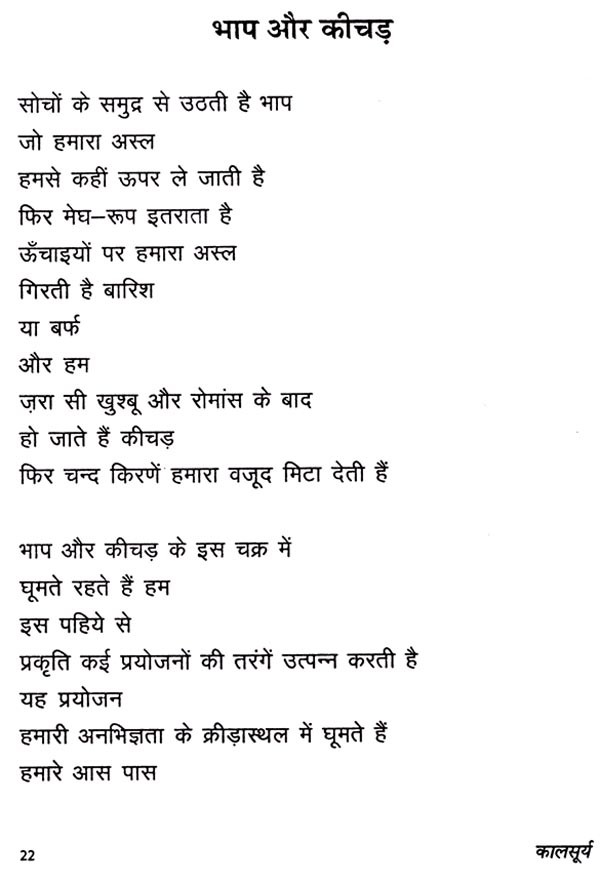 भाप और कीचड़
सोचों के समुद्र से उठती है भाप
जो हमारा अस्ल
हमसे कहीं ऊपर ले जाती है
फिर मेघ–रूप इतराता है
ऊँचाइयों पर हमारा अस्ल
गिरती है बारिश
या बर्फ
और हम
ज़रा सी खुश्बू और रोमांस के बाद
हो जाते हैं कीचड़
फिर चन्द किरणें हमारा वजूद मिटा देती हैं
भाप और कीचड़ के इस चक्र में
घूमते रहते हैं हम
इस पहिये से
प्रकृति कई प्रयोजनों की तरंगें उत्पन्न करती है
यह प्रयोजन
हमारी अनभिज्ञता के क्रीड़ास्थल में घूमते हैं
हमारे आस पास
22 कालसूर्य